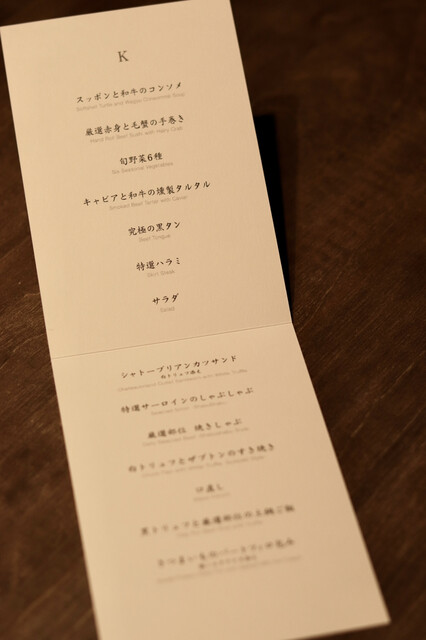 K
スッポンと和牛のコンソメ
Softshell Turtle and Wagyu Consommé Soup
厳選赤身と毛蟹の手巻き
Hand Roll Beef Sushi with Hairy Crab
旬野菜6種
Six Seasonal Vegetables
キャビアと和牛の燻製タルタル
Smoked Beef Tartar with Caviar
究極の黒タン
Beef Tongue
特選ハラミ
Skirt Steak
サラダ
Salad
シャトーブリアンカツサンド
白トリュフ風味
特選サーロインのしゃぶしゃぶ
厳選部位 焼きしゃぶ
白トリュフとザブトンのすき焼き
口直し
黒トリュフと厳選部位の土鍋ご飯